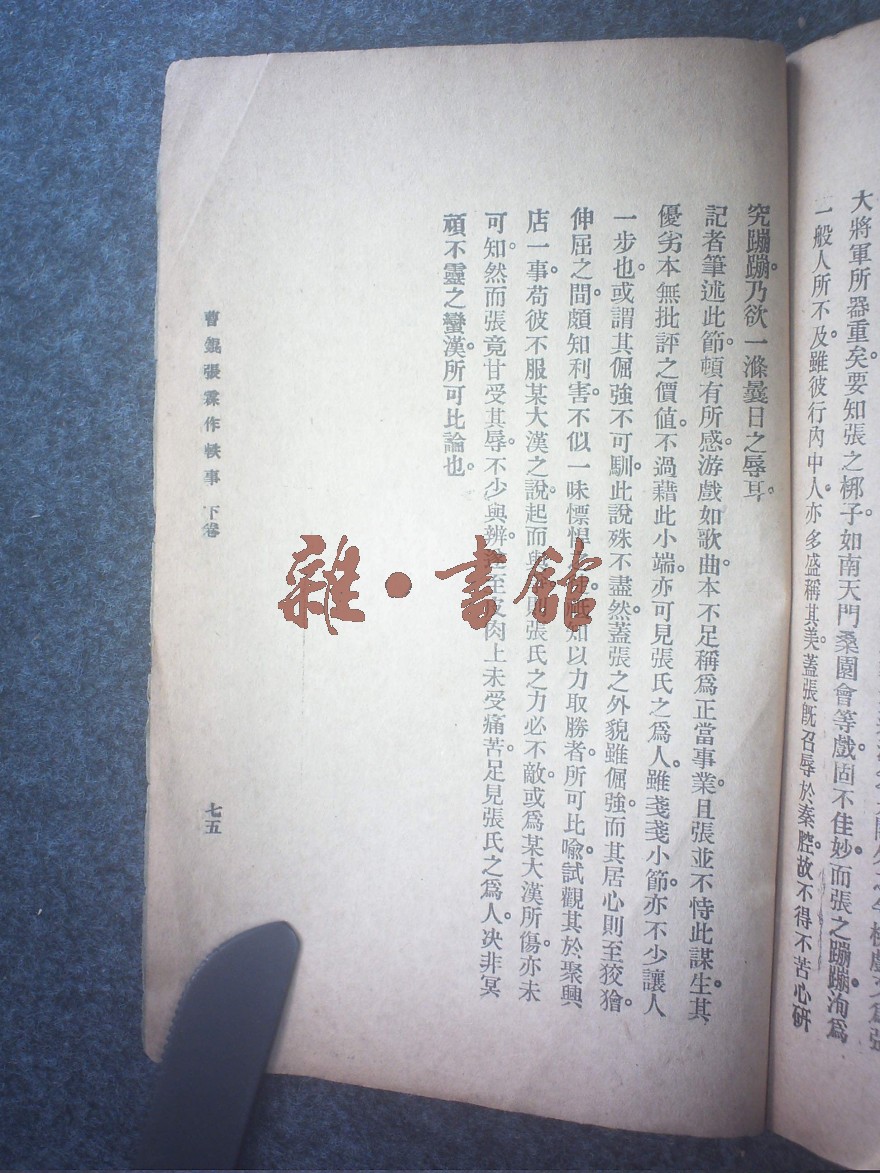 大將軍所器重矣。要知張之梆子。如南天門桑園會等戲。固不佳妙。而張之蹦蹦。洵爲
一般人所不及。雖彼行內中人。亦多盛稱其美。蓋張旣召辱於秦腔。故不得不苦心硏
究蹦蹦。乃欲一滌曩日之辱耳。
記者筆述此節。頓有所感。游戲如歌曲。本不足稱爲正當事業。且張並不恃此謀生。其
優劣本無批評之價値。不過藉此小端。亦可見張氏之爲人。雖戔戔小節。亦不少讓人
一步也。或謂其倔強不可馴。此說殊不盡然。蓋張之外貌雖倔強。而其居心則至狡獪。
伸屈之間。頗知利害。不似一味慓悍。知以力取勝者。所可比喩。試觀其於聚興
店一事。苟彼不服某大漢之說。起而與 則張氏之力必不敵。或爲某大漢所傷。亦未
可知。然而張竟甘受其辱。不少與辨。至皮肉上未受痛苦。足見張氏之爲人。决非冥
頑不靈之蠻漢。所可比論也。
曹錕張霖作軼事 下卷
七五
雜·書館